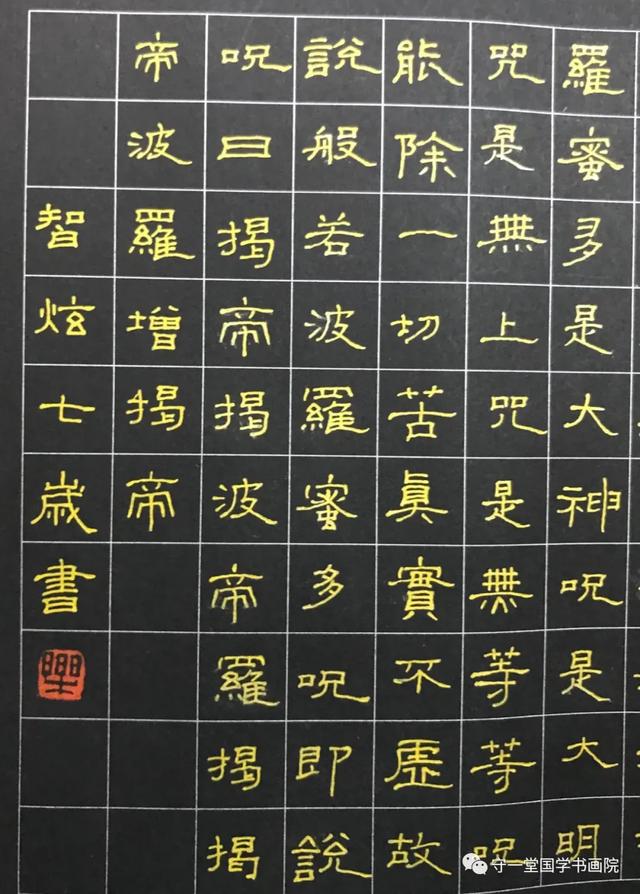 羅蜜多是大神呪是大明
咒是無上咒是無等等呪
能除一切苦眞實不虛故
說般若波羅蜜多呪即說
呪曰揭帝揭波帝羅揭揭
帝波羅增揭帝
智炫七歲書
守一堂国学书画院